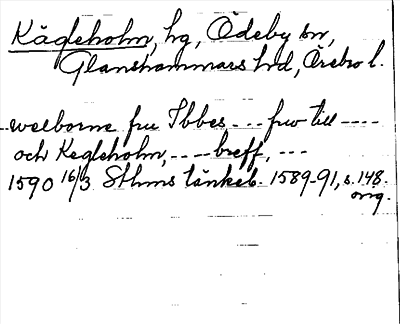 Kägleholm, hg, Ödeby sn,
Glanshammars hd, Örebro l.
welborne fru Ibbes --- frw till ----
och Kegleholm, ---- breff, ---
1590 16/3 Sthms tänkeb. 1589-91, s. 148.
orig.